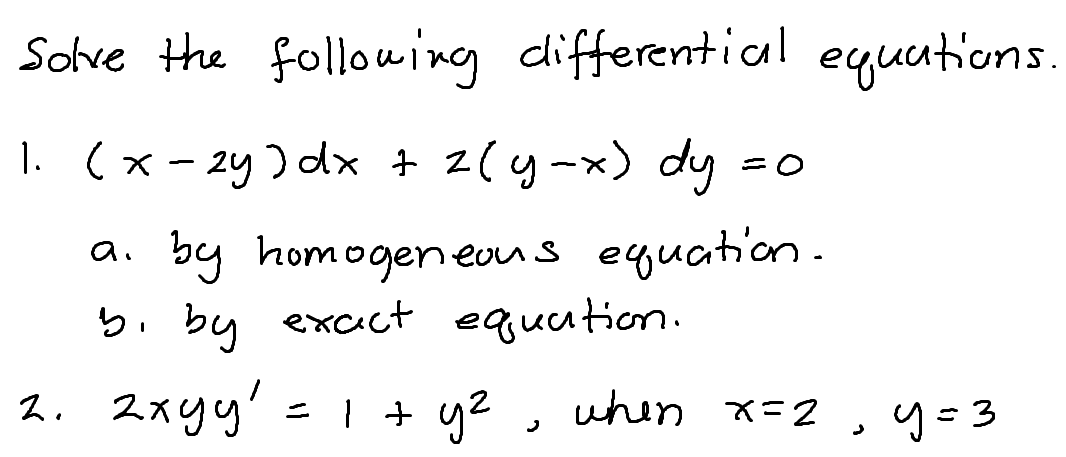 Solve the following differential equations.
1. (x - 2y)dx + 2(y-x) dy = 0
a. by homogeneous equation.
b. by exact equation.
2. 2xyy' = 1 + y², when x=2, y=3